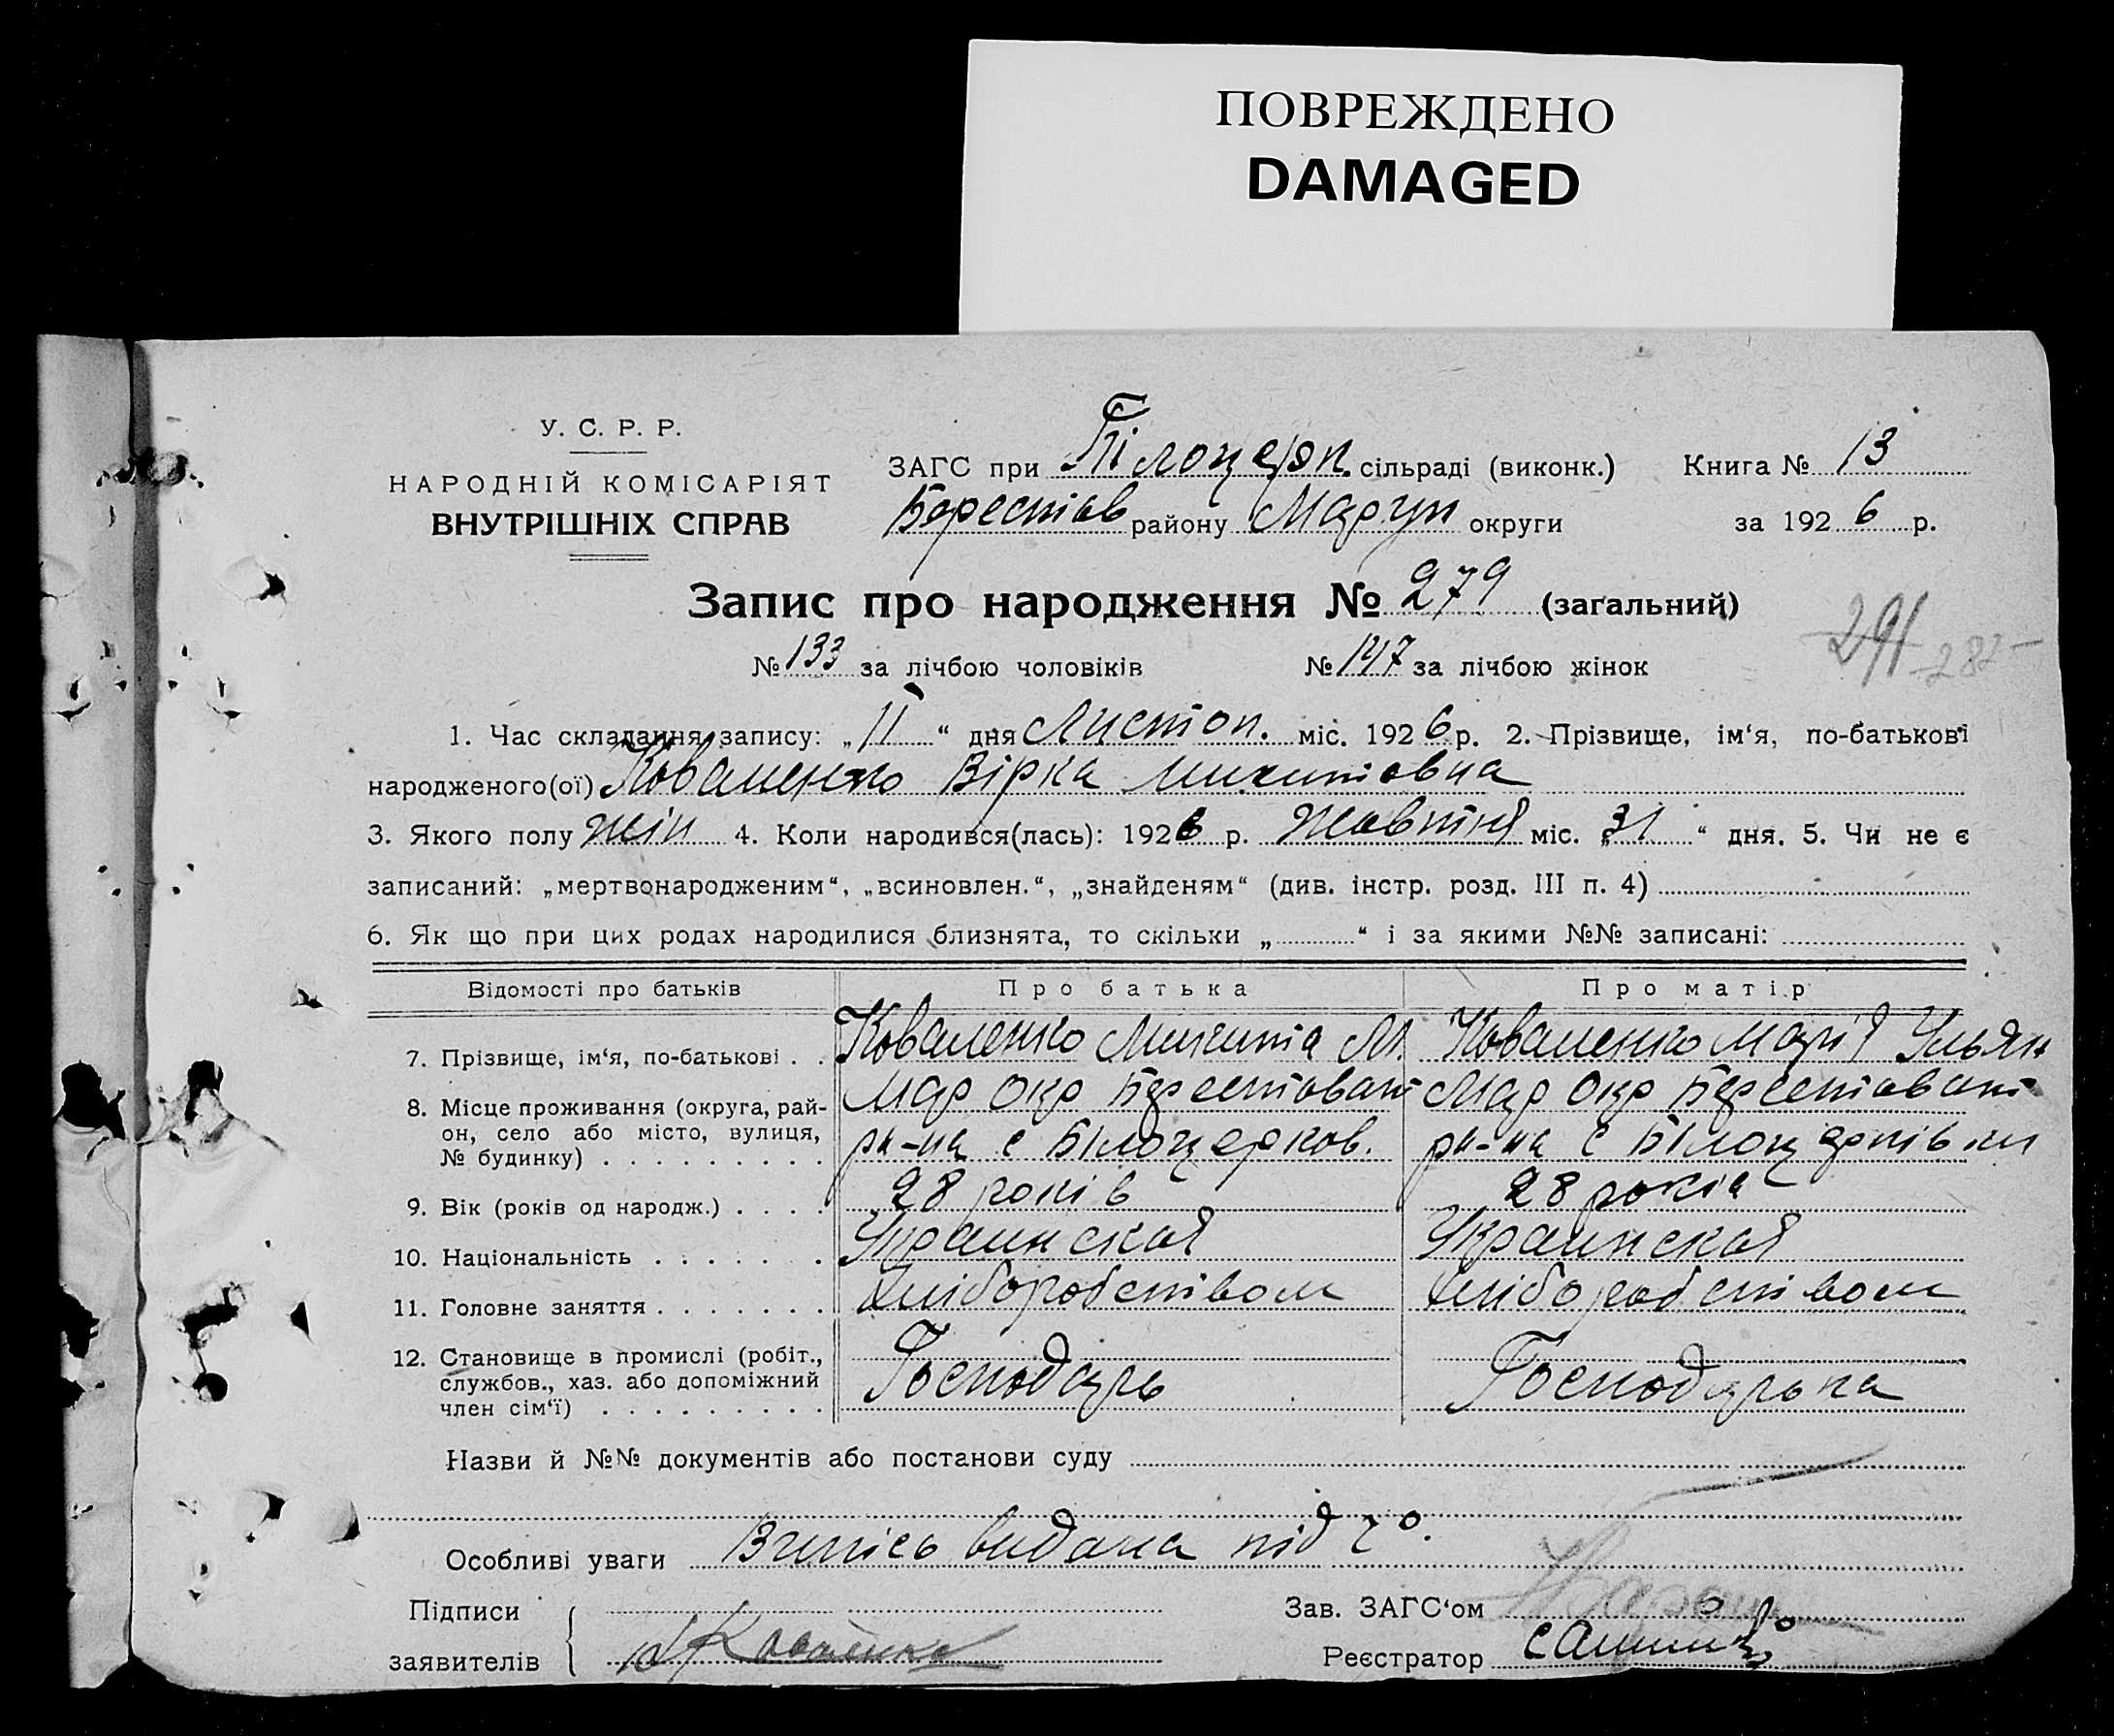 ПОВРЕЖДЕНО
DAMAGED
У. С. Р. Р.
НАРОДНІЙ КОМІСАРІЯТ
ВНУТРІШНІХ СПРАВ
ЗАГС при Білоцерк. сільраді (виконк.) Книга № 13
Берестов району Маруп округи за 1926 р.
Запис про народження № 279 (загальний)
№ 133 за лічбою чоловіків № 147 за лічбою жінок
291 282
1. Час складання запису: „11“ дня Листоп. міс. 1926 р. 2. Прізвище, ім‘я, по-батькові
народженого(ої) Коваленко Вірка Микитовна
3. Якого полу жін 4. Коли народився(лась): 1926 р. Жовтня міс. „31“ дня. 5. Чи не є
записаний: „мертвонародженим“, „всиновлен.“, „знайденям“ (див. інстр. розд. III п. 4)
6. Як що при цих родах народилися близнята, то скільки „ “ і за якими №№ записані:
Відомості про батьків Про батька Про матір
7. Прізвище, ім‘я, по-батькові . . Коваленко Микита М. Коваленко Марія Ульян
8. Місце проживання (округа, рай- Мар окр Берестовант Мар окр Берестовант
он, село або місто, вулиця, ра-на с Білоцерков. ра-на с Білоцерківки
№ будинку) . . . . . . . . .
9. Вік (років од народж.) . . . . 28 років 28 років
10. Національність . . . . . . . Украинская Украинская
11. Головне заняття . . . . . . . Хліборобством Хліборобством
12. Становище в промислі (робіт.,
службов., хаз. або допоміжний Господарь Господарька
член сім‘ї) . . . . . . . . .
Назви й №№ документів або постанови суду
Особливі уваги Випісь видана під
Підписи Зав. ЗАГС‘ом
заявителів Коваленко Реєстратор